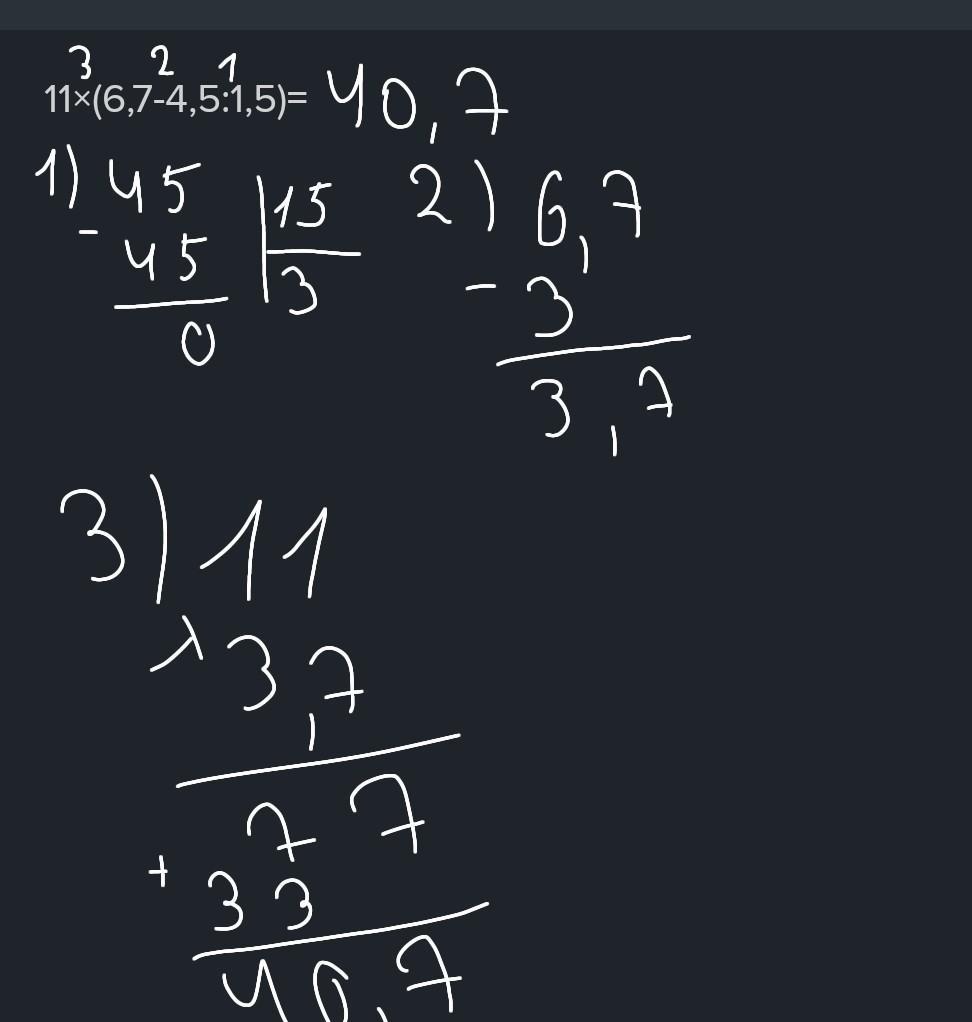 3 2 1
11×(6,7-4,5:1,5)= 40,7
1) 45 15 2) 6,7
- 45 3 - 3
0 3,7
3) 11
× 3,7
77
+ 33
40,7